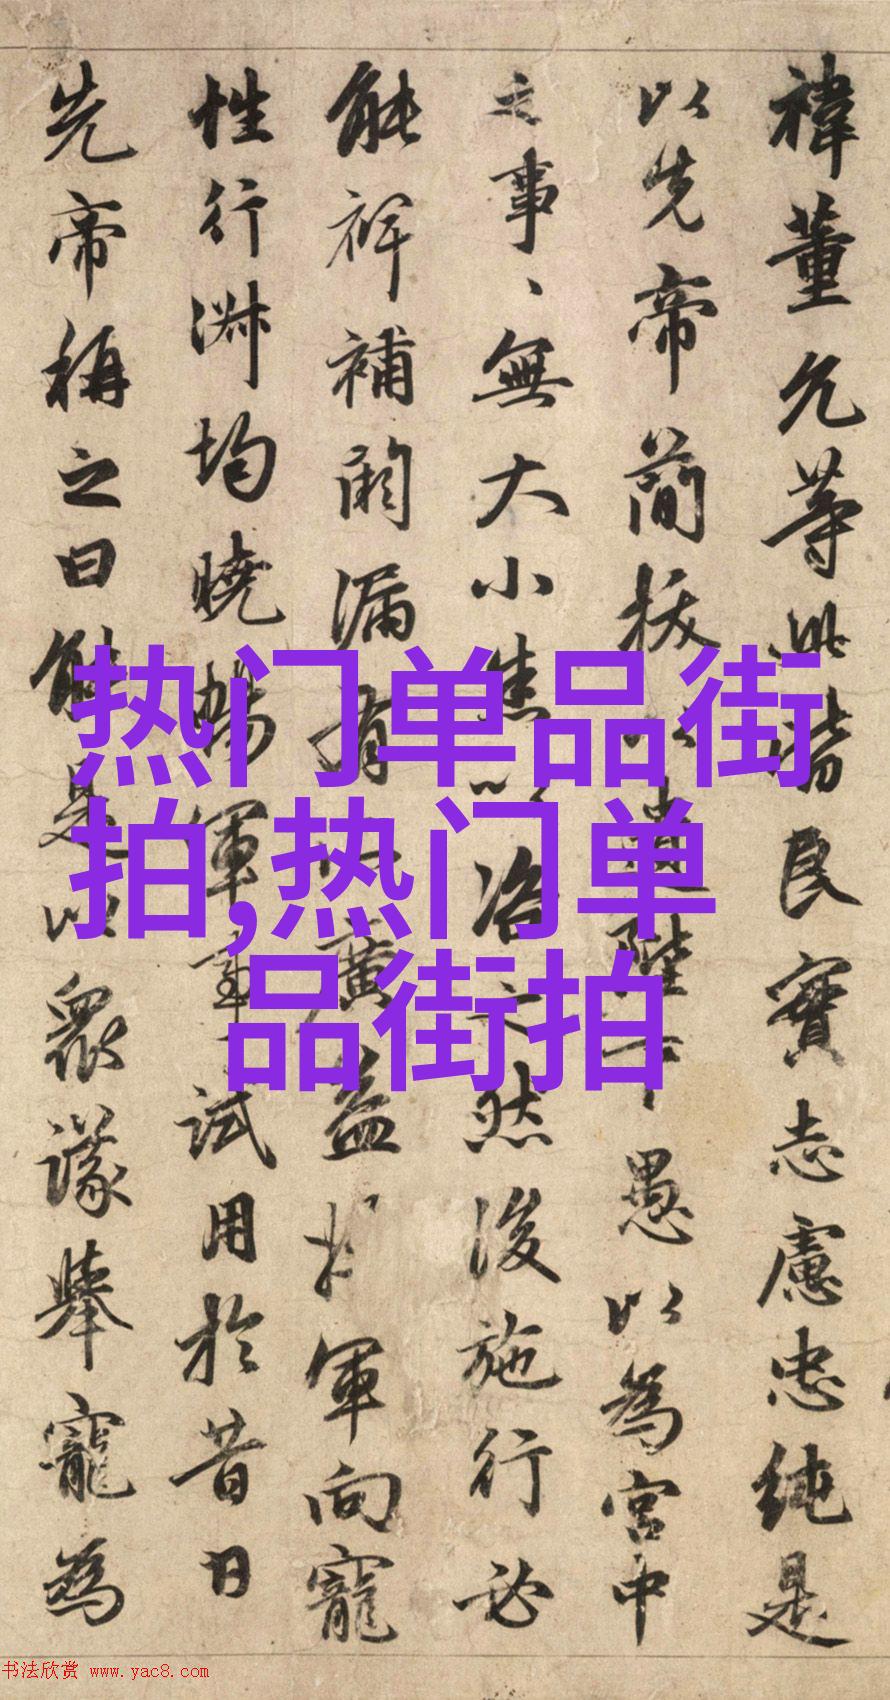 禕董允等此皆良實志慮忠純是
以先帝簡拔以遺陛下愚以為宮中
之事、無大小悉以咨之然後施行必
能裨補闕漏有廣益軍向寵
性行淋均曉暢軍事試用於昔日
先帝稱之曰能是以衆議舉寵為
热门单品街
拍,热门单
品街拍
书法欣赏 www.yac8.com